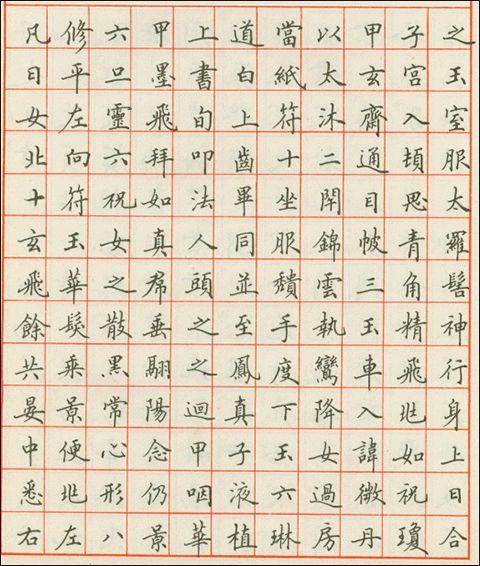 凡修六甲上道當以甲子之
日平旦墨書白紙太玄宮玉
女左靈飛旬上符沐齋入室
北向六拜叩齒十二通頓服
十符祝如法畢坐閉目思太
玄玉女真人同服錦帔青羅
飛華之帬頭並穨雲三角髻
餘髮散垂之至手執玉精神
共乘黑翮之鳳度鸞車飛行
晏景常陽迴真下降入兆身
中便心念甲子玉女諱如上
悉兆形仍咽液六過微祝日
右左八景華植琳房丹瓊合